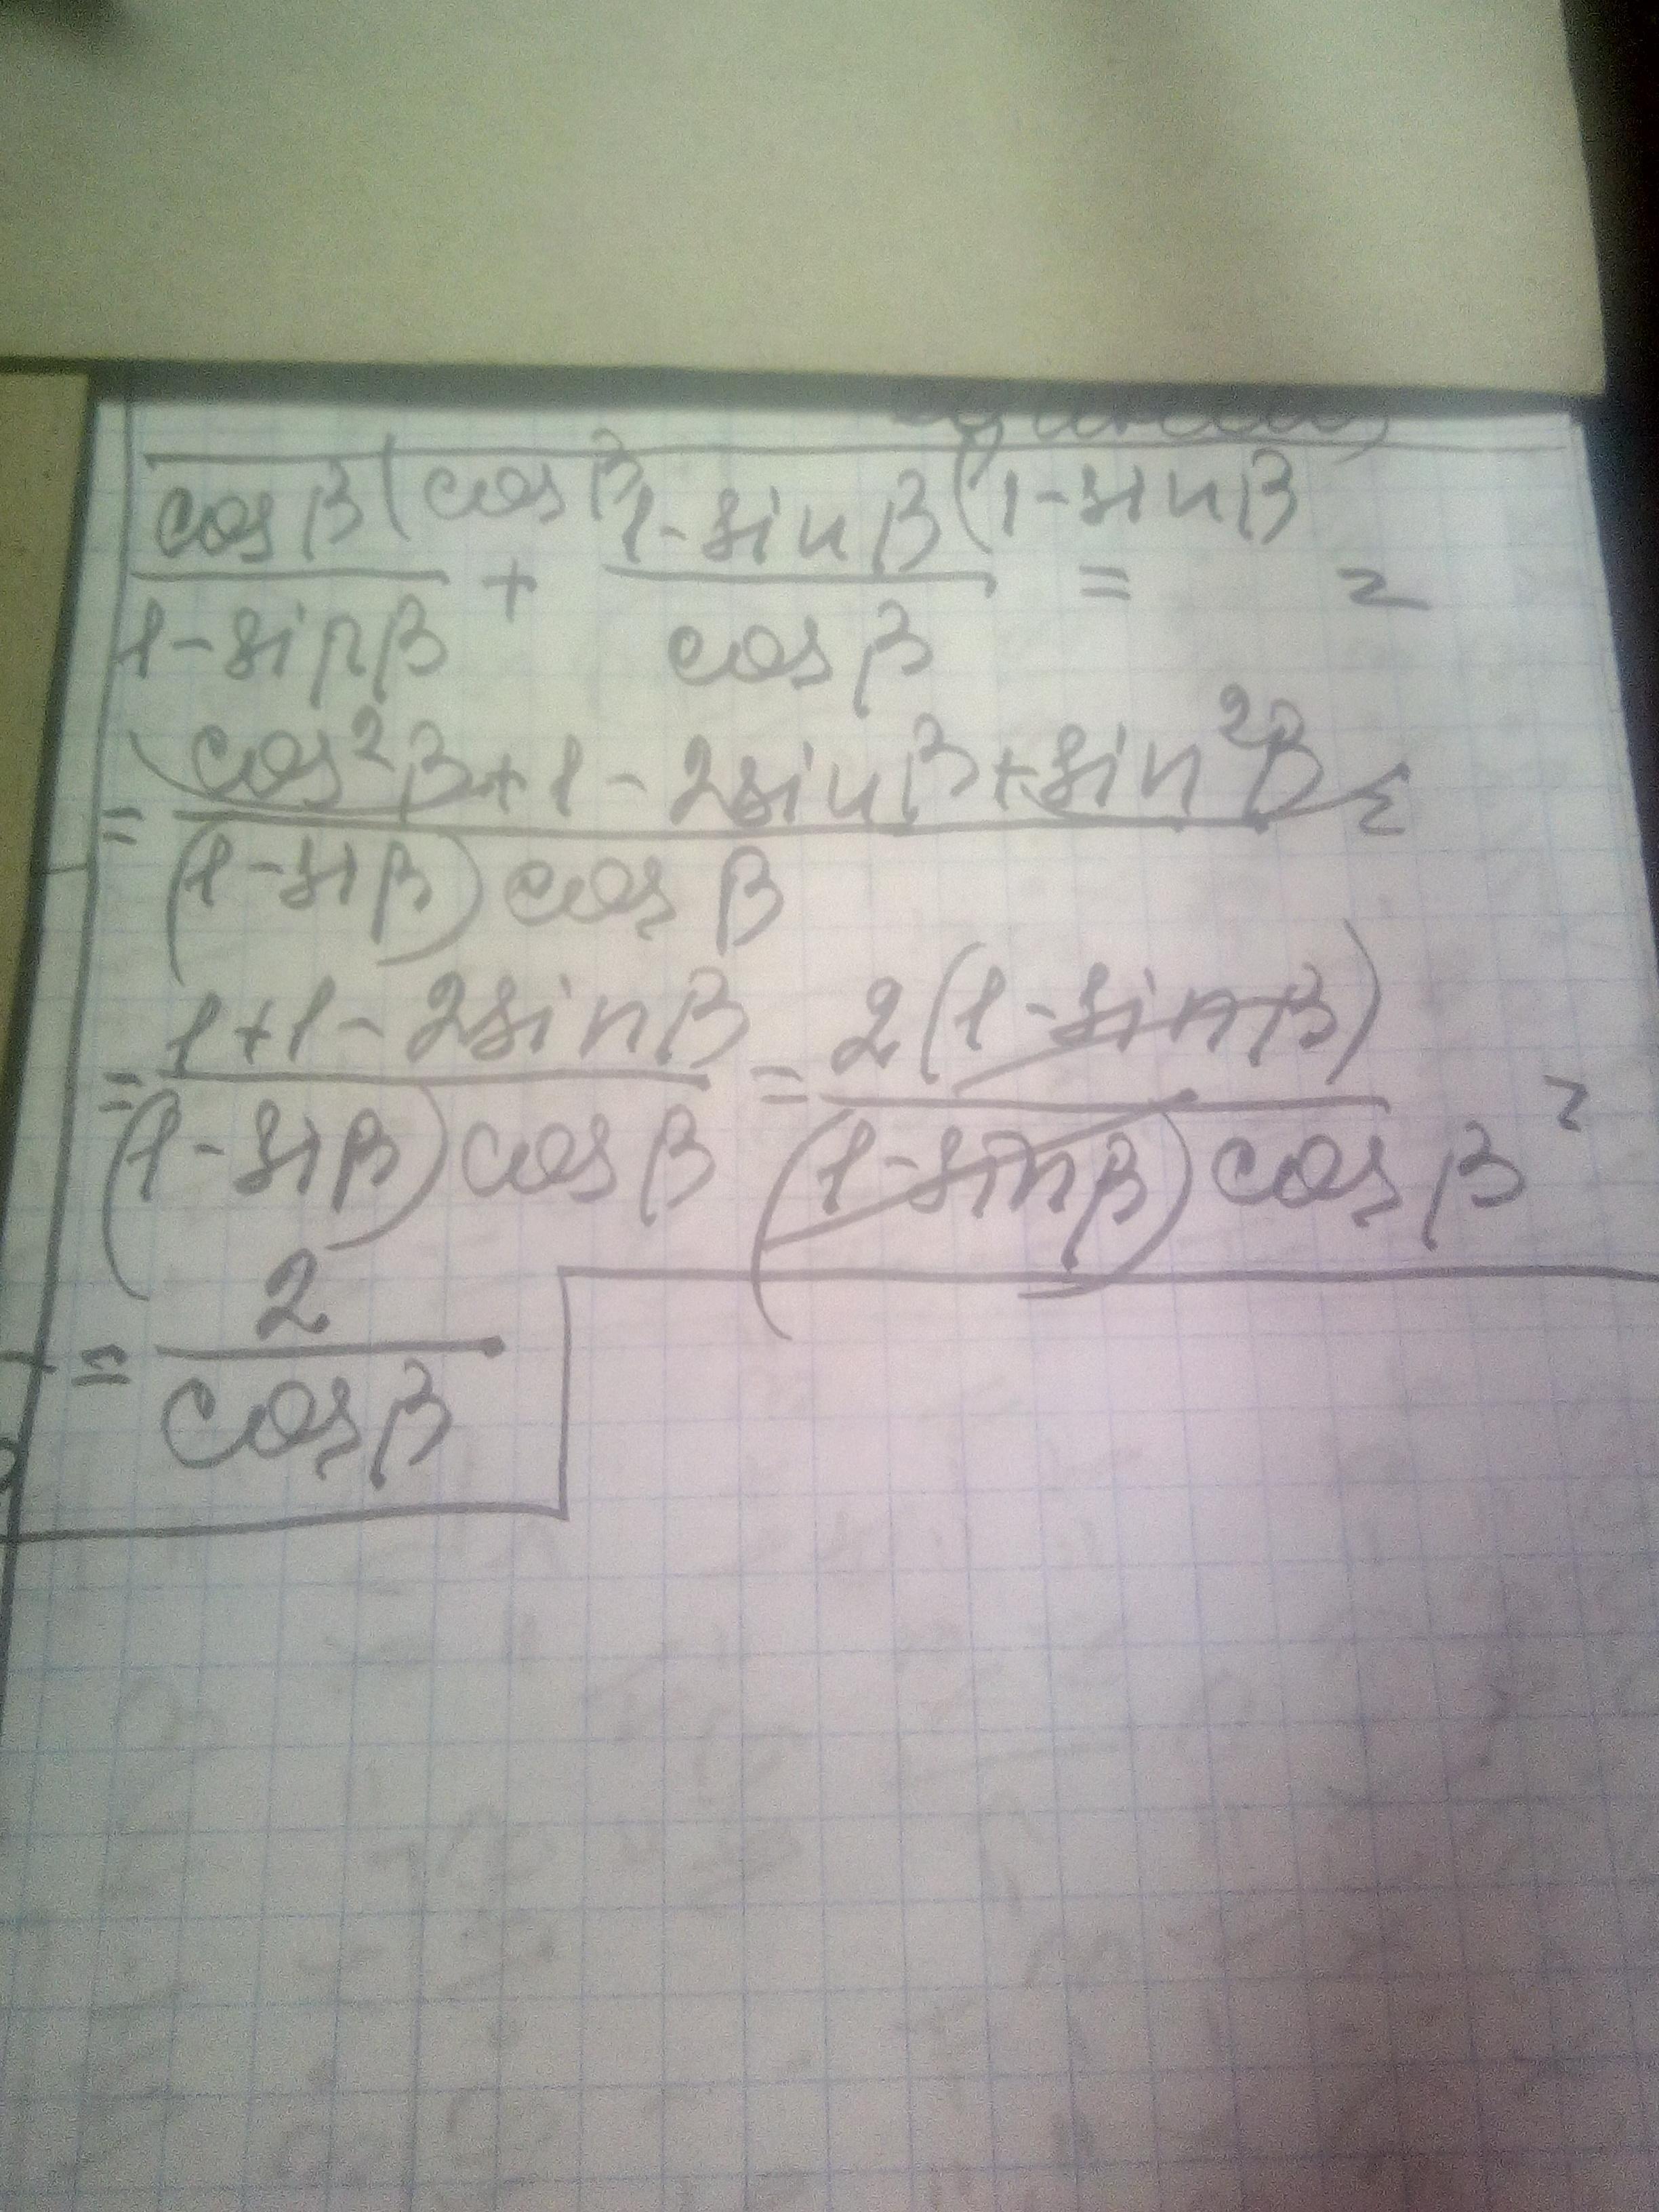 cos β (cos β 1 - sin β (1 - sin β
――― + ――― = =
1 - sin β cos β
= cos²β + 1 - 2 sin β + sin²β =
(1 - si β) cos β
= 1 + 1 - 2 sin β = 2 (1 - sin β) =
(1 - si β) cos β (1 - sin β) cos β
= 2
cos β